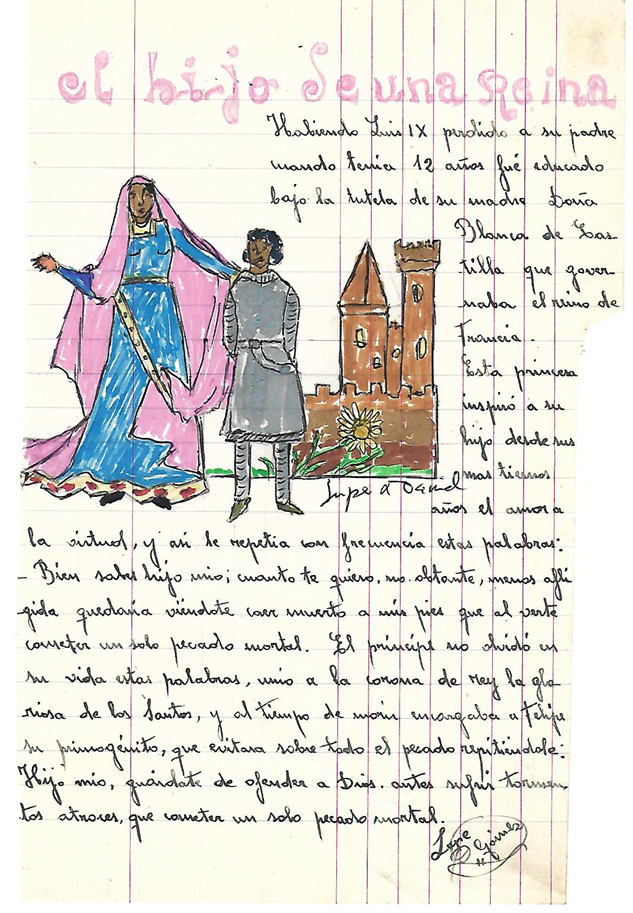 el hijo de una Reina
Habiendo Luis IX perdido a su padre
cuando tenia 12 años fué educado
bajo la tutela de su madre Doña
Blanca de Cas
tilla que gover
naba el reino de
Francia.
Esta princesa
inspiró a su
hijo desde sus
mas tiernos
años el amor a
la virtud, y asi le repetia con frecuencia estas palabras:
- Bien sabes hijo mio; cuanto te quiero, no obstante, menos afli
gida quedaria viéndote caer muerto a mis pies que al verte
cometer un solo pecado mortal. El principe no olvidó en
su vida estas palabras, unio a la corona de rey la glo
riosa de los Santos, y al tiempo de morir encargaba a Felipe
su primogénito, que evitara sobre todo el pecado repitiéndole:
Hijo mio, guárdate de ofender a Dios. antes sufrir tormen
tos atroces, que cometer un solo pecado mortal.
Gómez